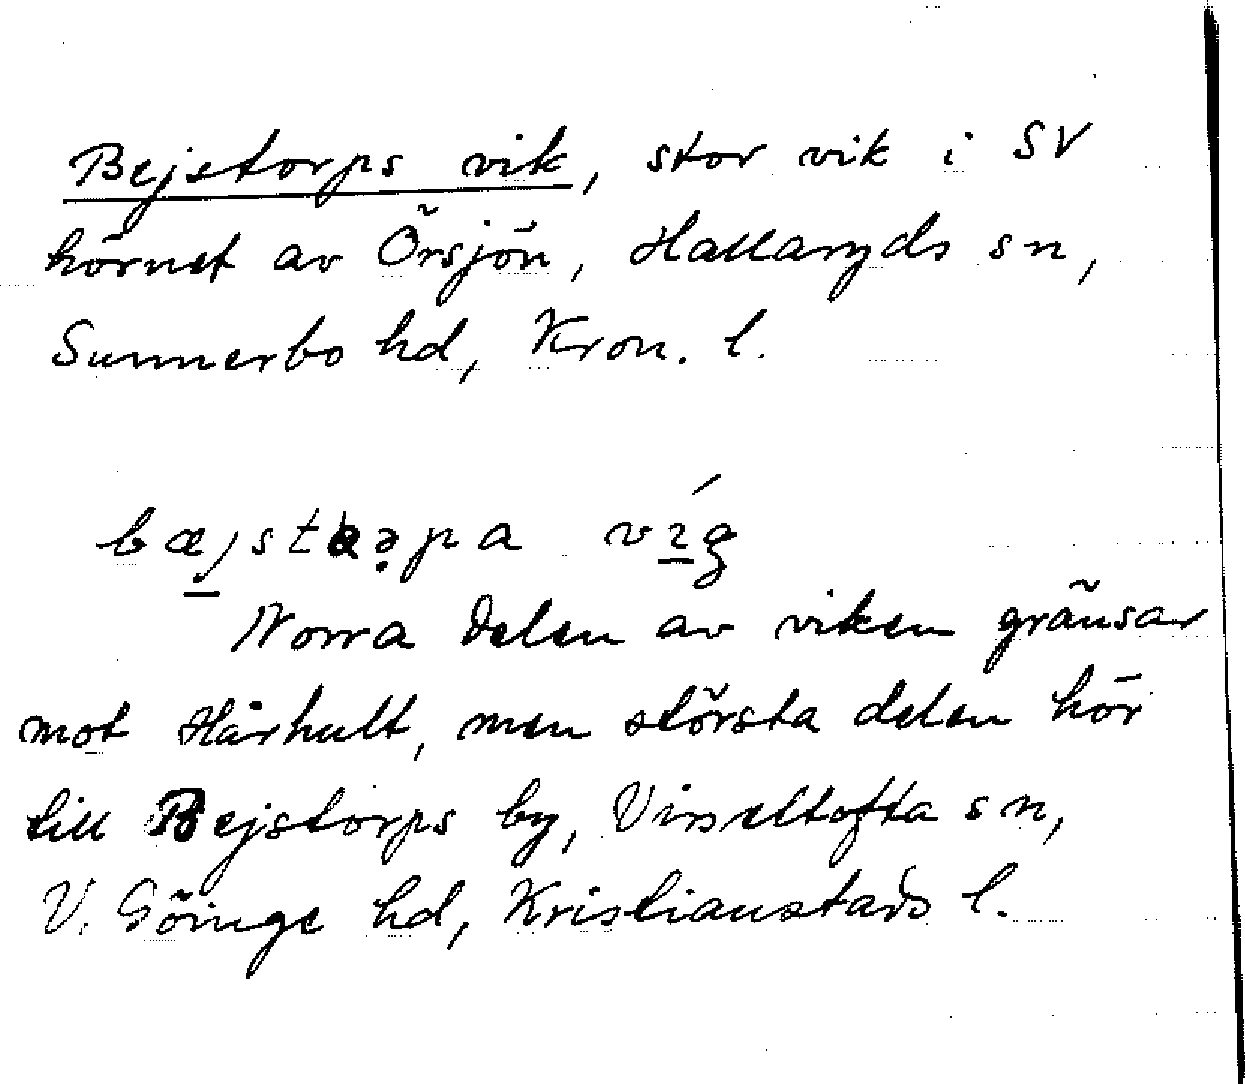 Bejstorps vik, stor vik i SV
hörnet av Örsjön, Hallaryds sn,
Sunnerbo hd, Kron. l.
Norra delen av viken gränsar
mot Hårhult, men största delen hör
till Bejstorps by, Visseltofta sn,
V. Göinge hd, Kristianstads l.